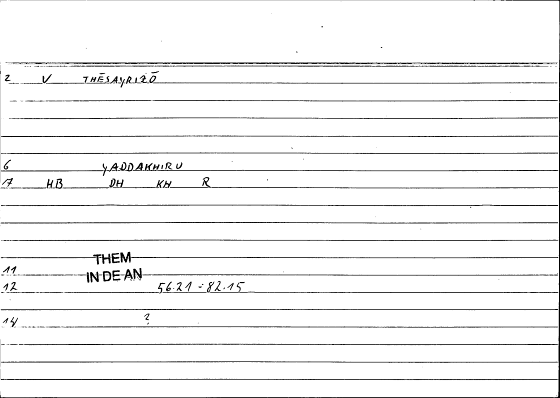 2 V THĒSAYRIZŌ
6 YADDAKHIRU
17 HB DH KH R
THEM
11
IN DE AN
12 56.21 - 82.15
14 ?